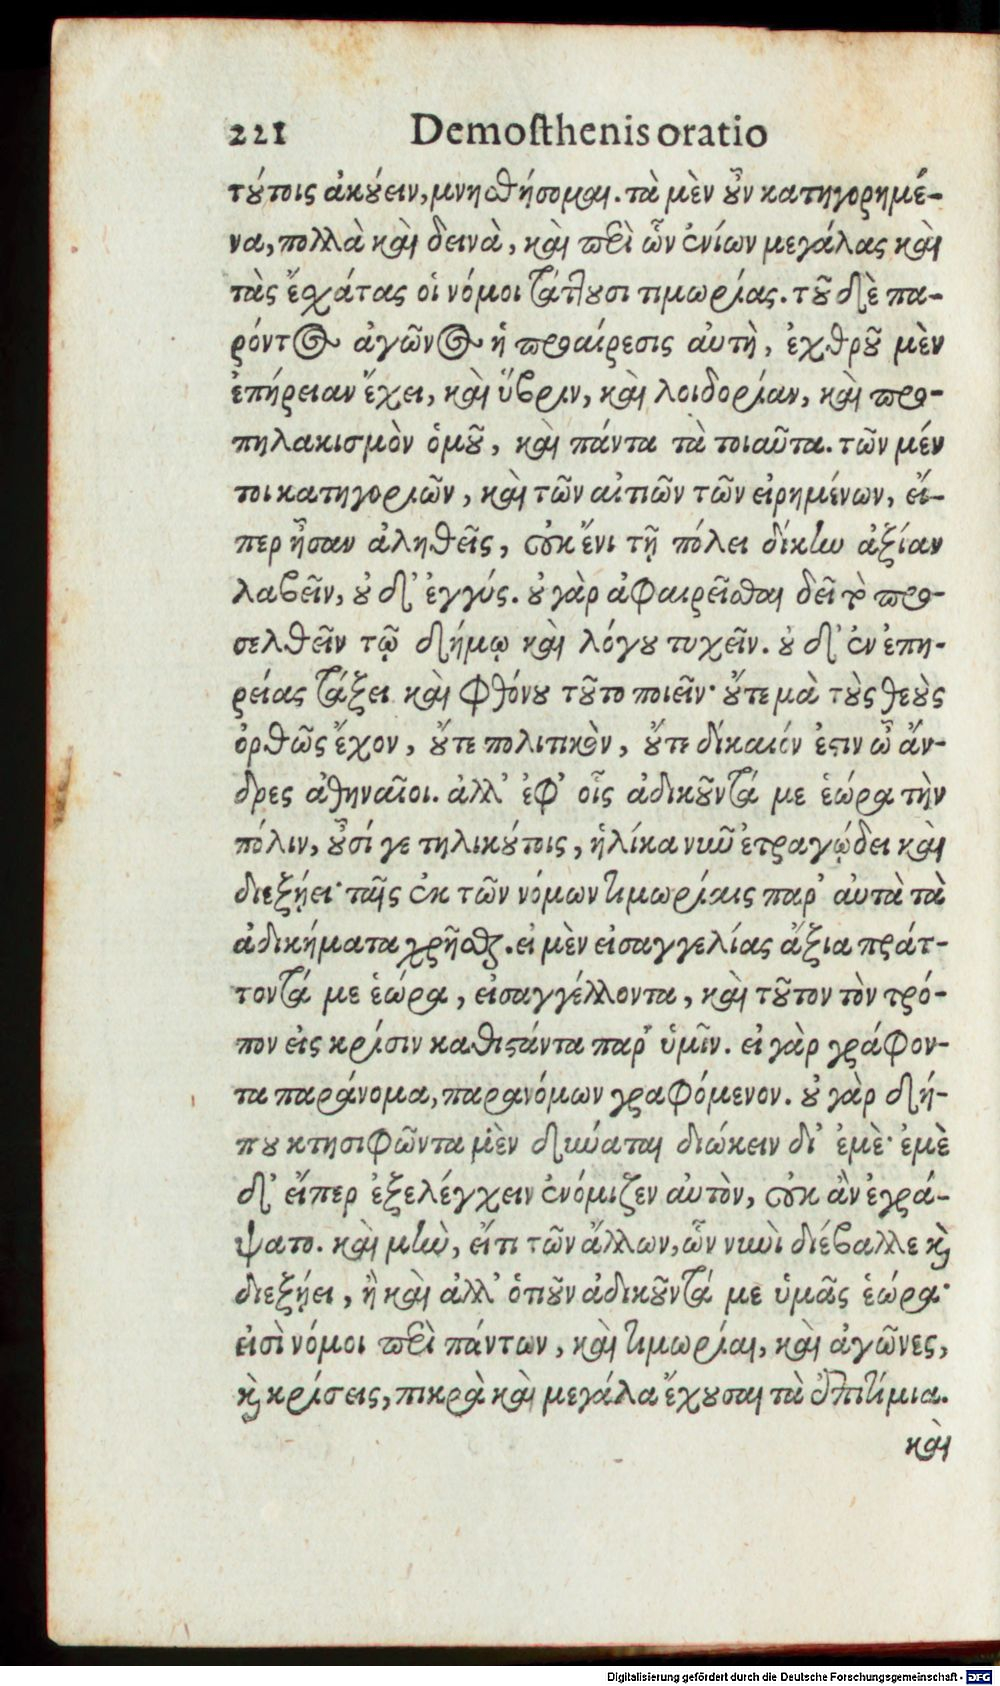 221 Demosthenis oratio
τούτοις ἀκούειν, μνησθήσομαι. τὰ μὲν οὖν κατηγορημέ-
να, πολλὰ καὶ δεινὰ, καὶ περὶ ὧν ἐνίων μεγάλας καὶ
τὰς ἐσχάτας οἱ νόμοι τάττουσι τιμωρίας. τοῦ δὲ πα-
ρόντος ἀγῶνος ἡ προαίρεσις αὐτὴ, ἐχθροῦ μὲν
ἐπήρειαν ἔχει, καὶ ὕβριν, καὶ λοιδορίαν, καὶ προ-
πηλακισμὸν ὁμοῦ, καὶ πάντα τὰ τοιαῦτα. τῶν μέν
τοι κατηγοριῶν, καὶ τῶν αἰτιῶν τῶν εἰρημένων, εἴ-
περ ἦσαν ἀληθεῖς, οὐκ ἔνι τῇ πόλει δίκην ἀξίαν
λαβεῖν, οὐ δ' ἐγγύς. οὐ γὰρ ἀφαιρεῖσθαι δεῖ τὸ προ-
σελθεῖν τῷ δήμῳ καὶ λόγου τυχεῖν. οὐ δ' ἐν ἐπη-
ρείας τάξει καὶ φθόνου τοῦτο ποιεῖν· οὔτε μὰ τοὺς θεοὺς
ὀρθῶς ἔχον, οὔτε πολιτικὸν, οὔτε δίκαιόν ἐστιν ὦ ἄν-
δρες ἀθηναῖοι. ἀλλ' ἐφ' οἷς ἀδικοῦντά με ἑώρα τὴν
πόλιν, οὖσί γε τηλικούτοις, ἡλίκα νῦν ἐτραγῴδει καὶ
διεξῄει· ταῖς ἐκ τῶν νόμων τιμωρίαις παρ' αὐτὰ τὰ
ἀδικήματα χρῆσθαι. εἰ μὲν εἰσαγγελίας ἄξια πράτ-
τοντά με ἑώρα, εἰσαγγέλλοντα, καὶ τοῦτον τὸν τρό-
πον εἰς κρίσιν καθιστάντα παρ' ὑμῖν. εἰ γὰρ γράφον-
τα παράνομα, παρανόμων γραφόμενον. οὐ γὰρ δή-
που κτησιφῶντα μὲν δύναται διώκειν δι' ἐμὲ· ἐμὲ
δ' εἴπερ ἐξελέγχειν ἐνόμιζεν αὐτὸν, οὐκ ἂν ἐγρά-
ψατο. καὶ μὴν, εἴ τι τῶν ἄλλων, ὧν νυνὶ διέβαλλε καὶ
διεξῄει, ἢ καὶ ἀλλ' ὁτιοῦν ἀδικοῦντά με ὑμᾶς ἑώρα·
εἰσὶ νόμοι περὶ πάντων, καὶ τιμωρίαι, καὶ ἀγῶνες,
καὶ κρίσεις, πικρὰ καὶ μεγάλα ἔχουσαι τὰ ἐπιτίμια.
καὶ
Digitalisierung gefördert durch die Deutsche Forschungsgemeinschaft - DFG